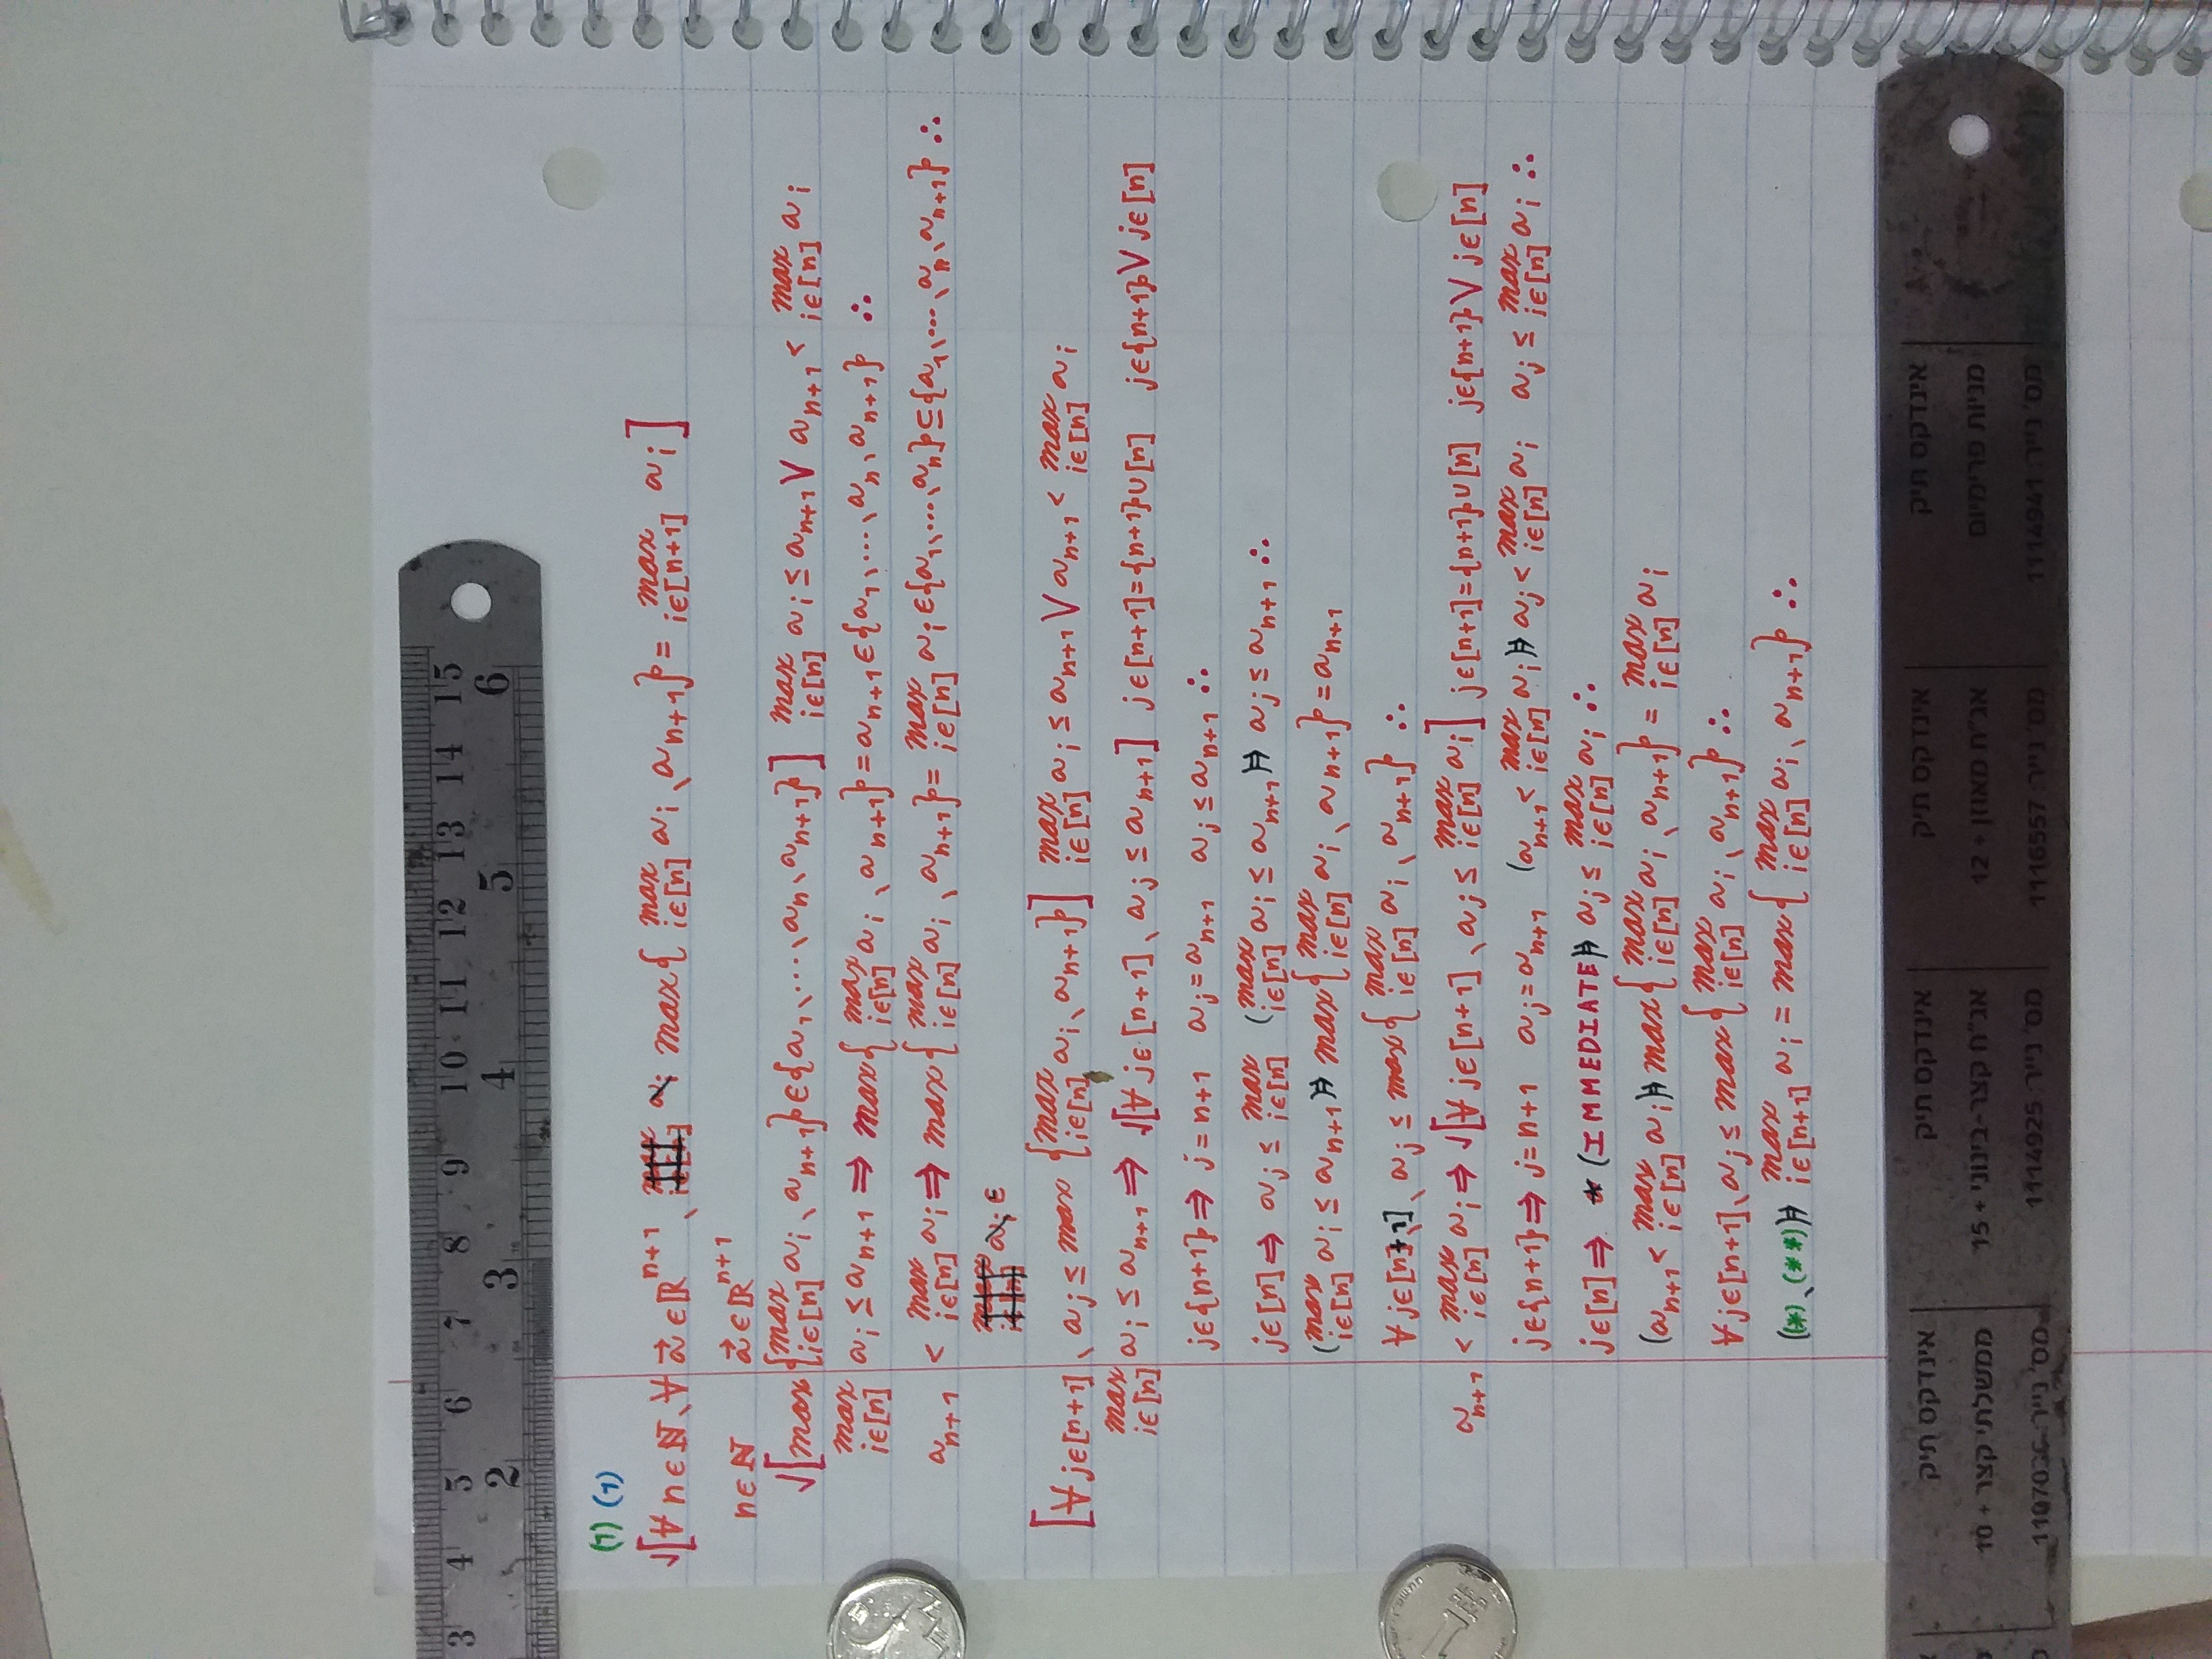 3 4 5 6 7 8 9 10 11 12 13 14 15
2 3 4 5 6
(1) (1)
√[∀ n∈ℕ、∀ a⃗∈ℝ^{n+1}、 max{ max_{i∈[n]} a_i、a_{n+1}} = max_{i∈[n+1]} a_i]
n∈ℕ a⃗∈ℝ^{n+1}
√[max{max_{i∈[n]} a_i、a_{n+1}}∈{a_1、…、a_n、a_{n+1}}] max_{i∈[n]} a_i ≤ a_{n+1} ∨ a_{n+1} < max_{i∈[n]} a_i
max_{i∈[n]} a_i ≤ a_{n+1} ⇒ max{ max_{i∈[n]} a_i、a_{n+1}} = a_{n+1}∈{a_1、…、a_n、a_{n+1}} ∴
a_{n+1} < max_{i∈[n]} a_i ⇒ max{ max_{i∈[n]} a_i、a_{n+1}} = max_{i∈[n]} a_i∈{a_1、…、a_n}⊆{a_1、…、a_n、a_{n+1}} ∴
max_{i∈[n]} a_i ∈
[∀ j∈[n+1]、a_j ≤ max{max_{i∈[n]} a_i、a_{n+1}}] max_{i∈[n]} a_i ≤ a_{n+1} ∨ a_{n+1} < max_{i∈[n]} a_i
max_{i∈[n]} a_i ≤ a_{n+1} ⇒ √[∀ j∈[n+1]、a_j ≤ a_{n+1}] j∈[n+1]={n+1}∪[n] j∈{n+1} ∨ j∈[n]
j∈{n+1} ⇒ j=n+1 a_j=a_{n+1} a_j ≤ a_{n+1} ∴
j∈[n] ⇒ a_j ≤ max_{i∈[n]} (max_{i∈[n]} a_i ≤ a_{n+1})⇒ a_j ≤ a_{n+1} ∴
(max_{i∈[n]} a_i ≤ a_{n+1})⇒ max{ max_{i∈[n]} a_i、a_{n+1}} = a_{n+1}
∀ j∈[n+1]、a_j ≤ max{ max_{i∈[n]} a_i、a_{n+1}} ∴
a_{n+1} < max_{i∈[n]} a_i ⇒ √[∀ j∈[n+1]、a_j ≤ max_{i∈[n]} a_i] j∈[n+1]={n+1}∪[n] j∈{n+1} ∨ j∈[n]
j∈{n+1} ⇒ j=n+1 a_j=a_{n+1} (a_{n+1} < max_{i∈[n]} a_i)⇒ a_j < max_{i∈[n]} a_i a_j ≤ max_{i∈[n]} a_i ∴
j∈[n] ⇒ (IMMEDIATE)⇒ a_j ≤ max_{i∈[n]} a_i ∴
(a_{n+1} < max_{i∈[n]} a_i)⇒ max{ max_{i∈[n]} a_i、a_{n+1}} = max_{i∈[n]} a_i
∀ j∈[n+1]、a_j ≤ max{ max_{i∈[n]} a_i、a_{n+1}} ∴
((*)、(**))⇒ max_{i∈[n+1]} a_i = max{ max_{i∈[n]} a_i、a_{n+1}} ∴
אינדקס תיק אינדקס תיק אינדקס תיק אינדקס תיק
מניות פרימיום אג"ח מאוזן + 12 אג"ח קצר-בינוני + 15 ממשלתי קצר + 10
מס' נייר: 1114941 מס' נייר: 1116557 מס' נייר: 1114925 מס' נייר: